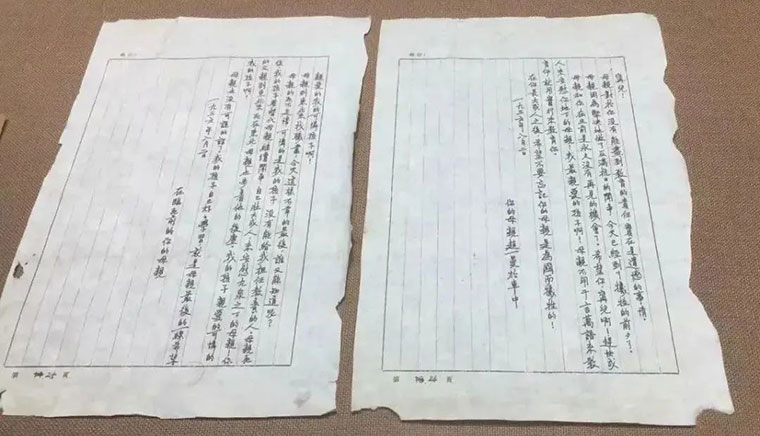 寧兒：
母親對於你沒有能盡到教育的責任，實在是遺憾的事情。
母親因為堅決地做了反滿抗日的鬥爭，今天已經到了犧牲的前夕了。
母親和你在生前是永久沒有再見的機會了。希望你，寧兒啊！趕快成
人，來安慰你地下的母親！我最親愛的孩子啊！母親不用千言萬語來教
育你，就用實行來教育你。
在你長大成人之後，希望不要忘記你的母親是為國而犧牲的！
一九三六年八月二日
你的母親趙一曼於車中
親愛的我的可憐孩子啊！
母親到東北來找職業，今天這樣不幸的最後，誰又能知道呢？
母親的死不足惜，可憐的是我的孩子，沒有能給我擔任教養的人。母親死
後，我的孩子要替代母親繼續鬥爭，自己壯大成人，來安慰九泉之下的母親！你
的父親到東北來死在東北，母親也步著他的後塵。我的孩子，親愛的可憐的
我的孩子啊！
母親也沒有可說的話了，我的孩子自己好好學習，就是母親最後的一線希望。
一九三六年八月二日
在臨死前的你的母親